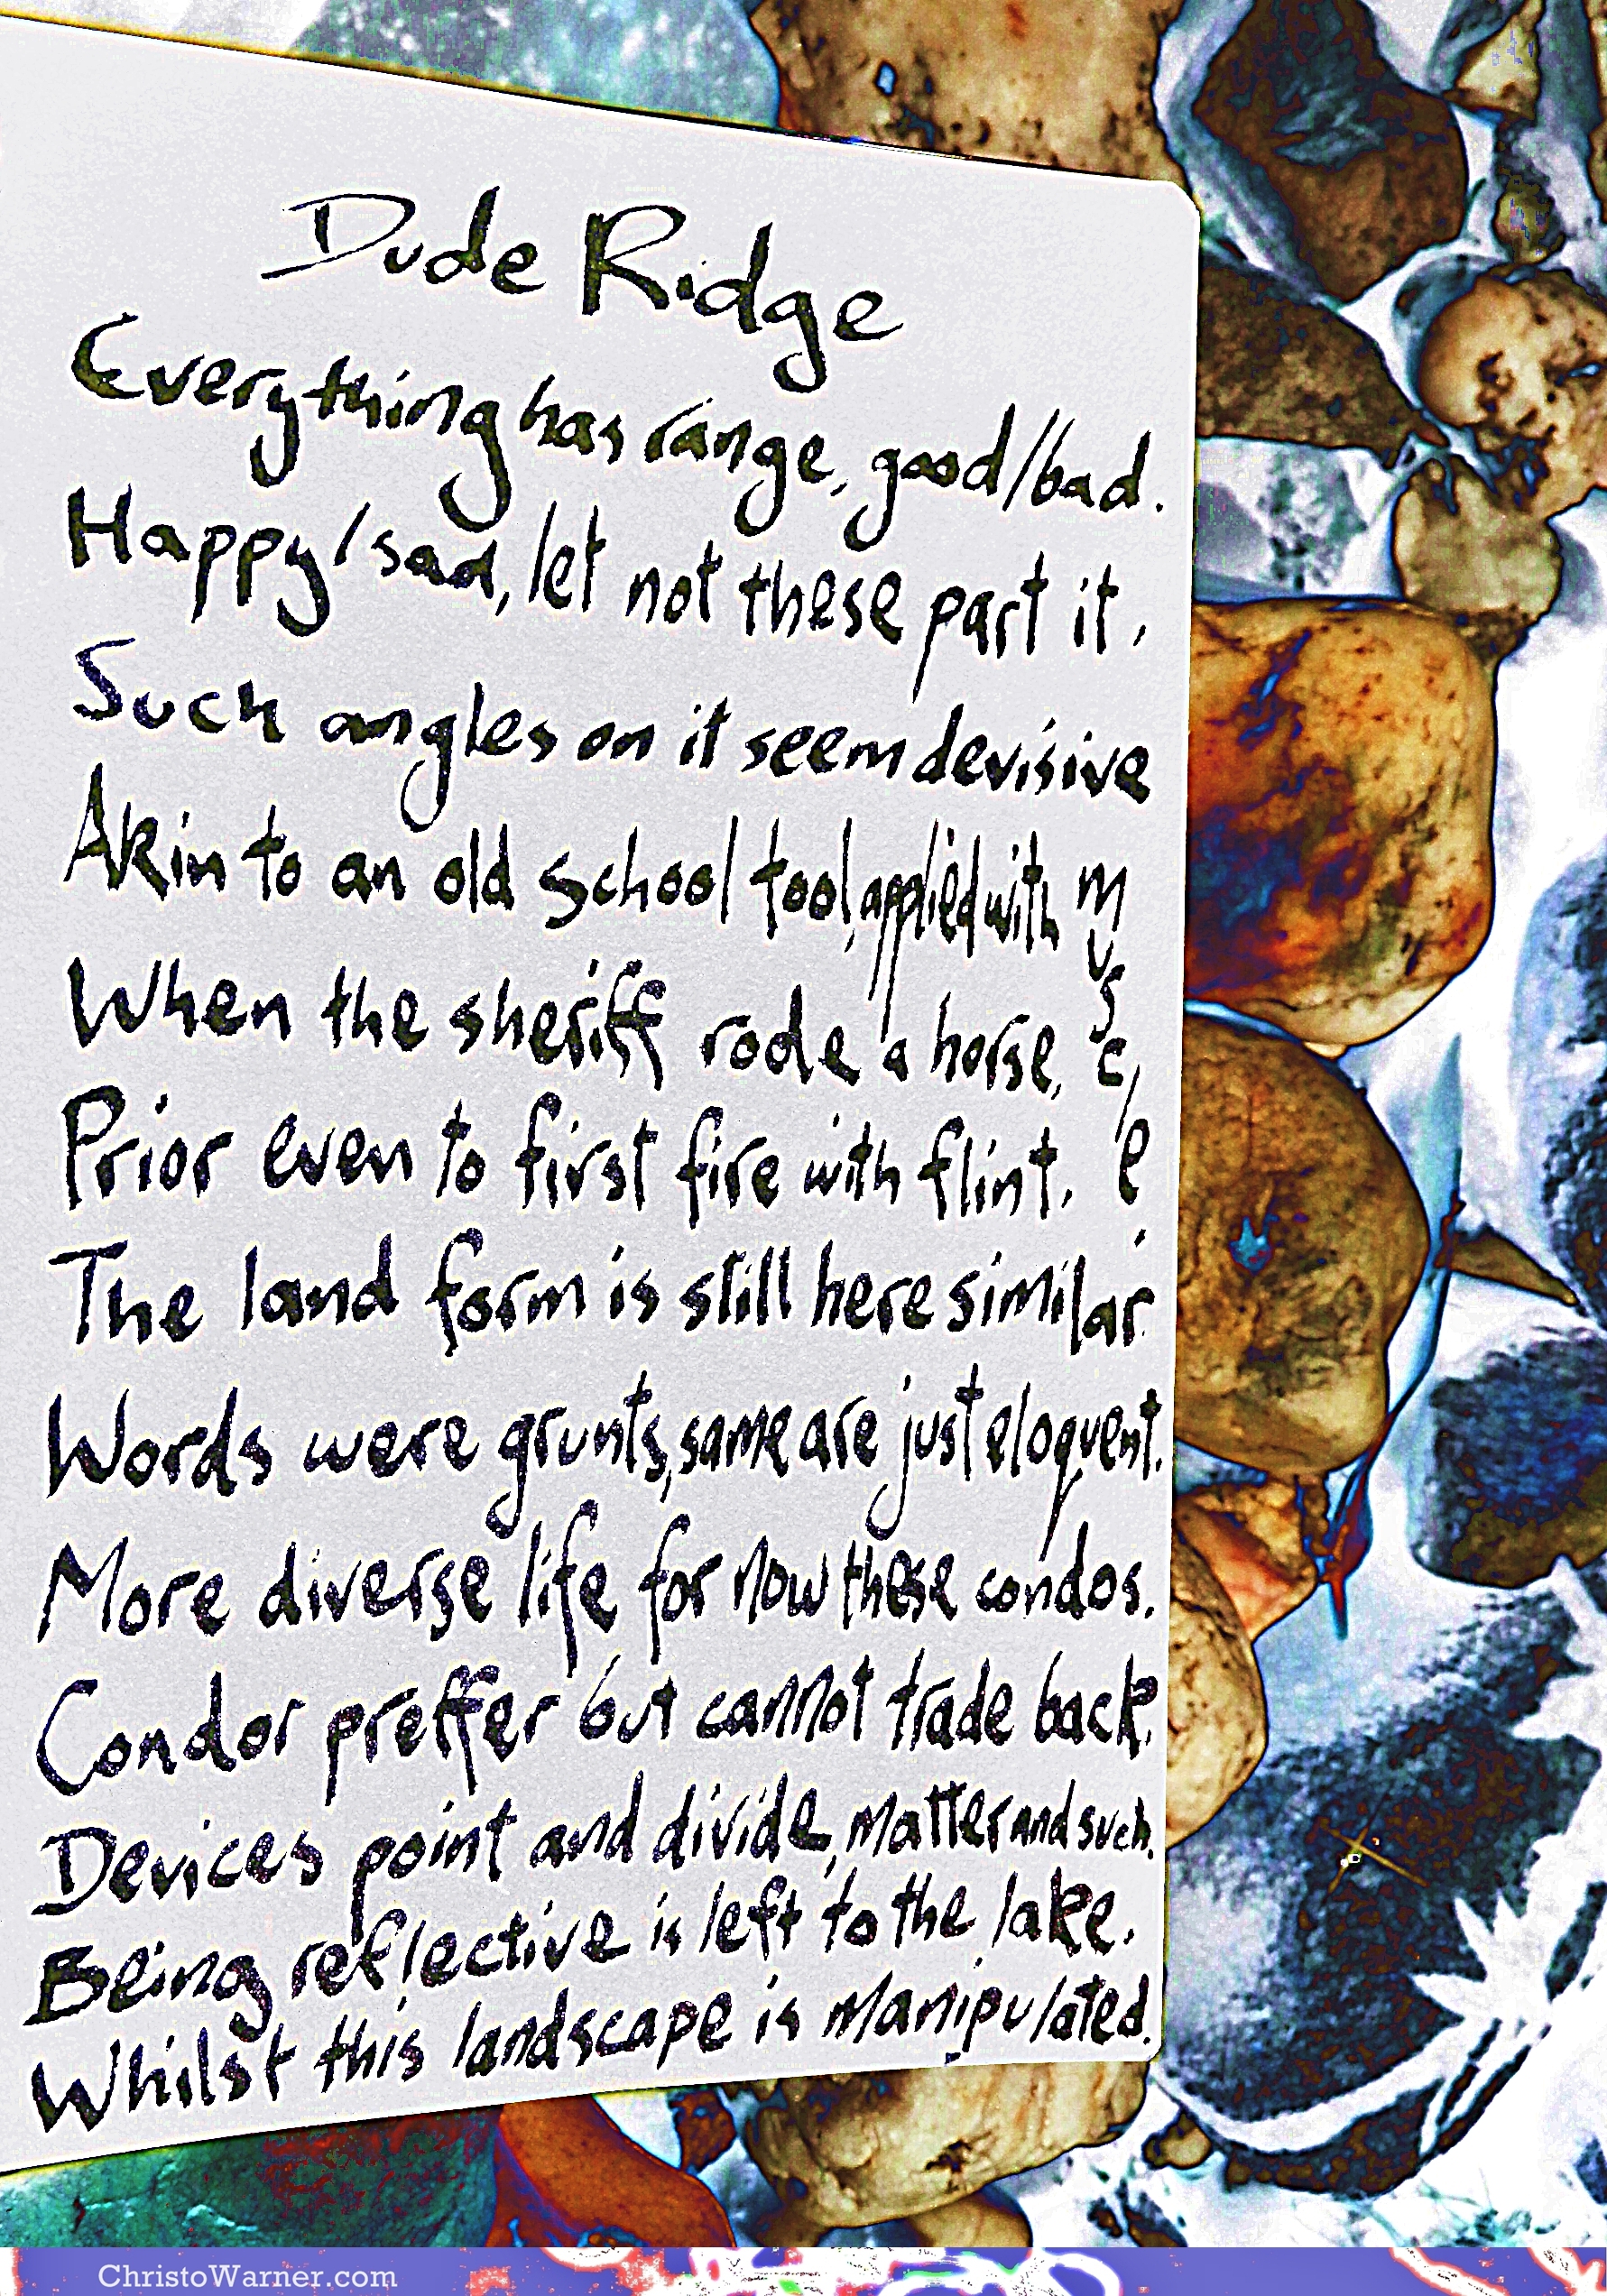 Dude Ridge
Everything has range, good/bad.
Happy/sad, let not these part it,
Such angles on it seem devisive
Akin to an old school tool, applied with muscle.
When the sheriff rode a horse,
Prior even to first fire with flint.
The land form is still here similar.
Words were grunts, same are just eloquent.
More diverse life for now these condos.
Condor preffer but cannot trade back.
Devices point and divide, matter and such.
Being reflective is left to the lake.
Whilst this landscape is manipulated.
ChristoWarner.com